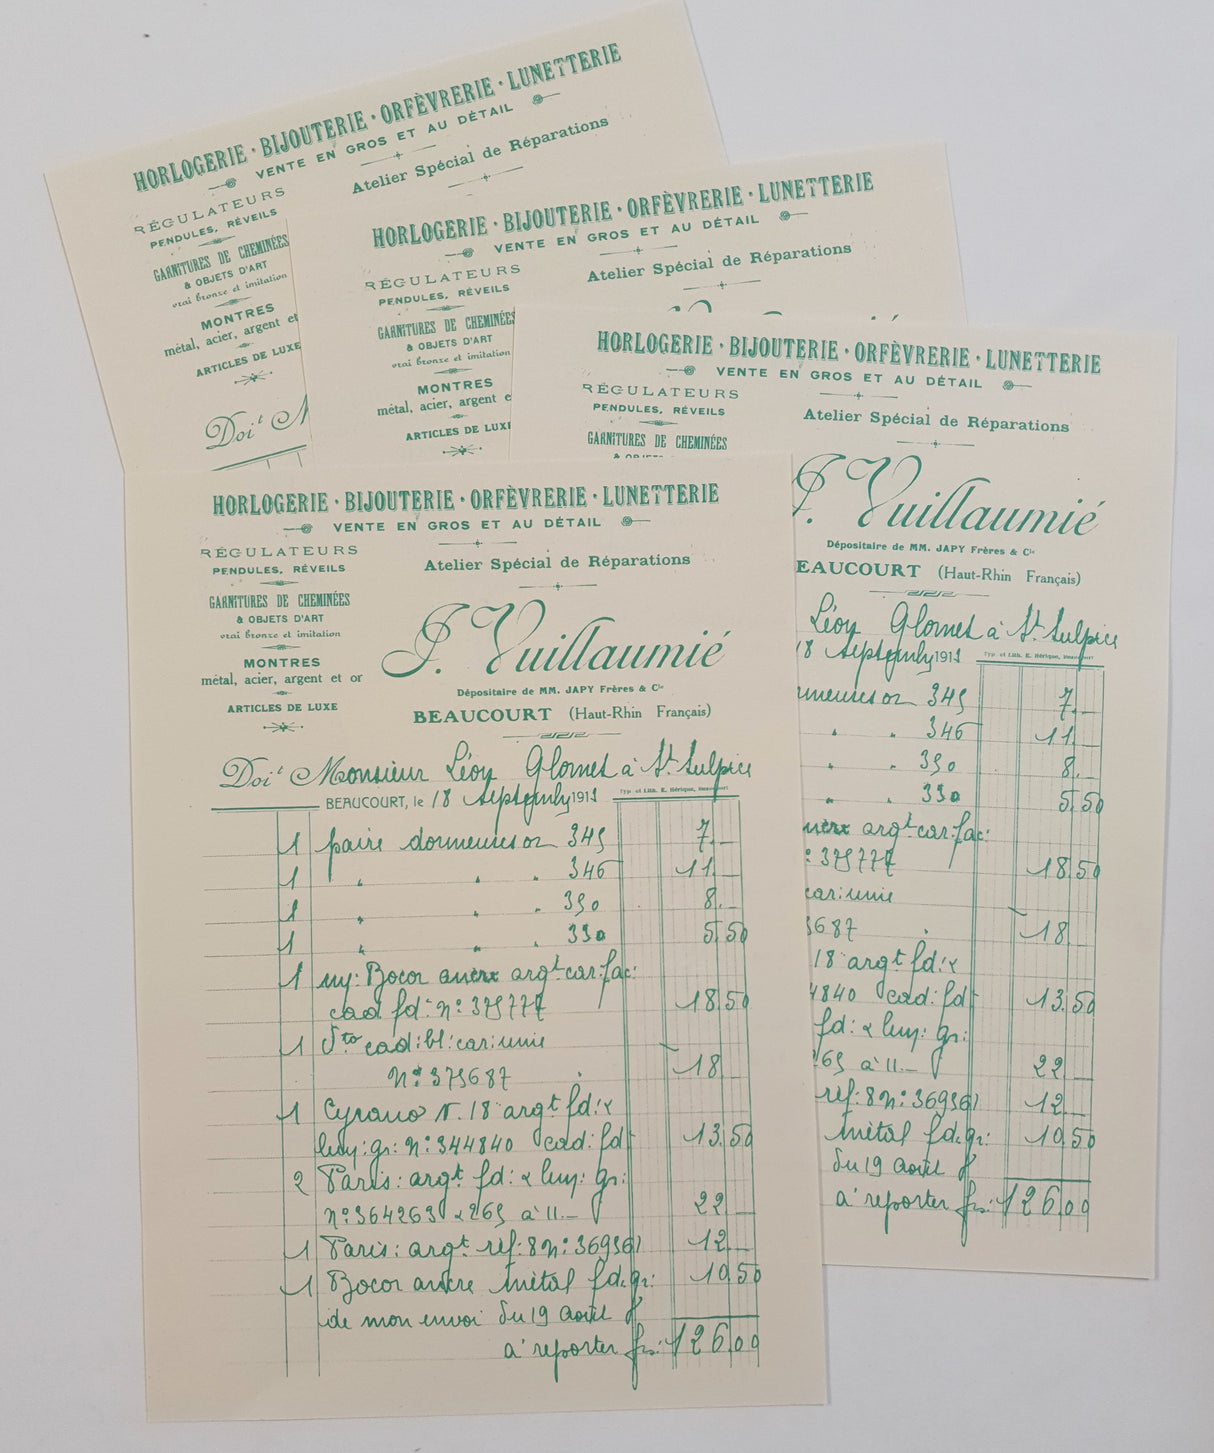 HORLOGERIE · BIJOUTERIE · ORFÈVRERIE · LUNETTERIE
VENTE EN GROS ET AU DÉTAIL
Atelier Spécial de Réparations
RÉGULATEURS
PENDULES, RÉVEILS
GARNITURES DE CHEMINÉES
& OBJETS D'ART
vrai bronze et imitation
MONTRES
métal, acier, argent et
ARTICLES DE LUXE
Doit M
HORLOGERIE · BIJOUTERIE · ORFÈVRERIE · LUNETTERIE
VENTE EN GROS ET AU DÉTAIL
Atelier Spécial de Réparations
RÉGULATEURS
PENDULES, RÉVEILS
GARNITURES DE CHEMINÉES
& OBJETS D'ART
vrai bronze et imitation
MONTRES
métal, acier, argent e
ARTICLES DE LUX
HORLOGERIE · BIJOUTERIE · ORFÈVRERIE · LUNETTERIE
VENTE EN GROS ET AU DÉTAIL
RÉGULATEURS
PENDULES, RÉVEILS
Atelier Spécial de Réparations
GARNITURES DE CHEMINÉES
J. Vuillaumié
Dépositaire de MM. JAPY Frères & Cie
EAUCOURT (Haut-Rhin Français)
Léon Glornet à St Sulpice
18 1911
Typ. et Lith. E. Hérique,
345 7.—
" " 346 11.—
" " 350 8.—
" " 330 5.50
argt car: fac:
: 375777 18.50
car: unie
3687 18
18 argt fd: &
4840 cad: fd 13.50
fd: & luy: gr:
265 à 11.— 22
réf: 8 n: 369361 12
métal fd. gr: 10.50
du 19 août
à reporter frs: 126.00
HORLOGERIE · BIJOUTERIE · ORFÈVRERIE · LUNETTERIE
VENTE EN GROS ET AU DÉTAIL
RÉGULATEURS
PENDULES, RÉVEILS
Atelier Spécial de Réparations
GARNITURES DE CHEMINÉES
& OBJETS D'ART
vrai bronze et imitation
MONTRES
métal, acier, argent et or
ARTICLES DE LUXE
J. Vuillaumié
Dépositaire de MM. JAPY Frères & Cie
BEAUCOURT (Haut-Rhin Français)
Doit Monsieur Léon Glornet à St Sulpice
BEAUCOURT, le 18 1911
Typ. et Lith. E. Hérique,
1 paire dormeuses or 345 7.—
1 " " " 346 11.—
1 " " " 350 8.—
1 " " " 330 5.50
1 Bocor ancre argt car: fac:
cad fd: n: 375777 18.50
1 Dto cad: bl: car: unie
N: 375687 18
1 Cyrano N. 18 argt fd: &
luy: gr: N: 344840 cad: fd 13.50
2 Paris: argt fd: & luy: gr:
N: 364263 & 265 à 11.— 22
1 Paris: argt réf: 8 n: 369361 12
1 Bocor ancre métal fd. gr: 10.50
de mon envoi du 19 août
à reporter frs: 126.00